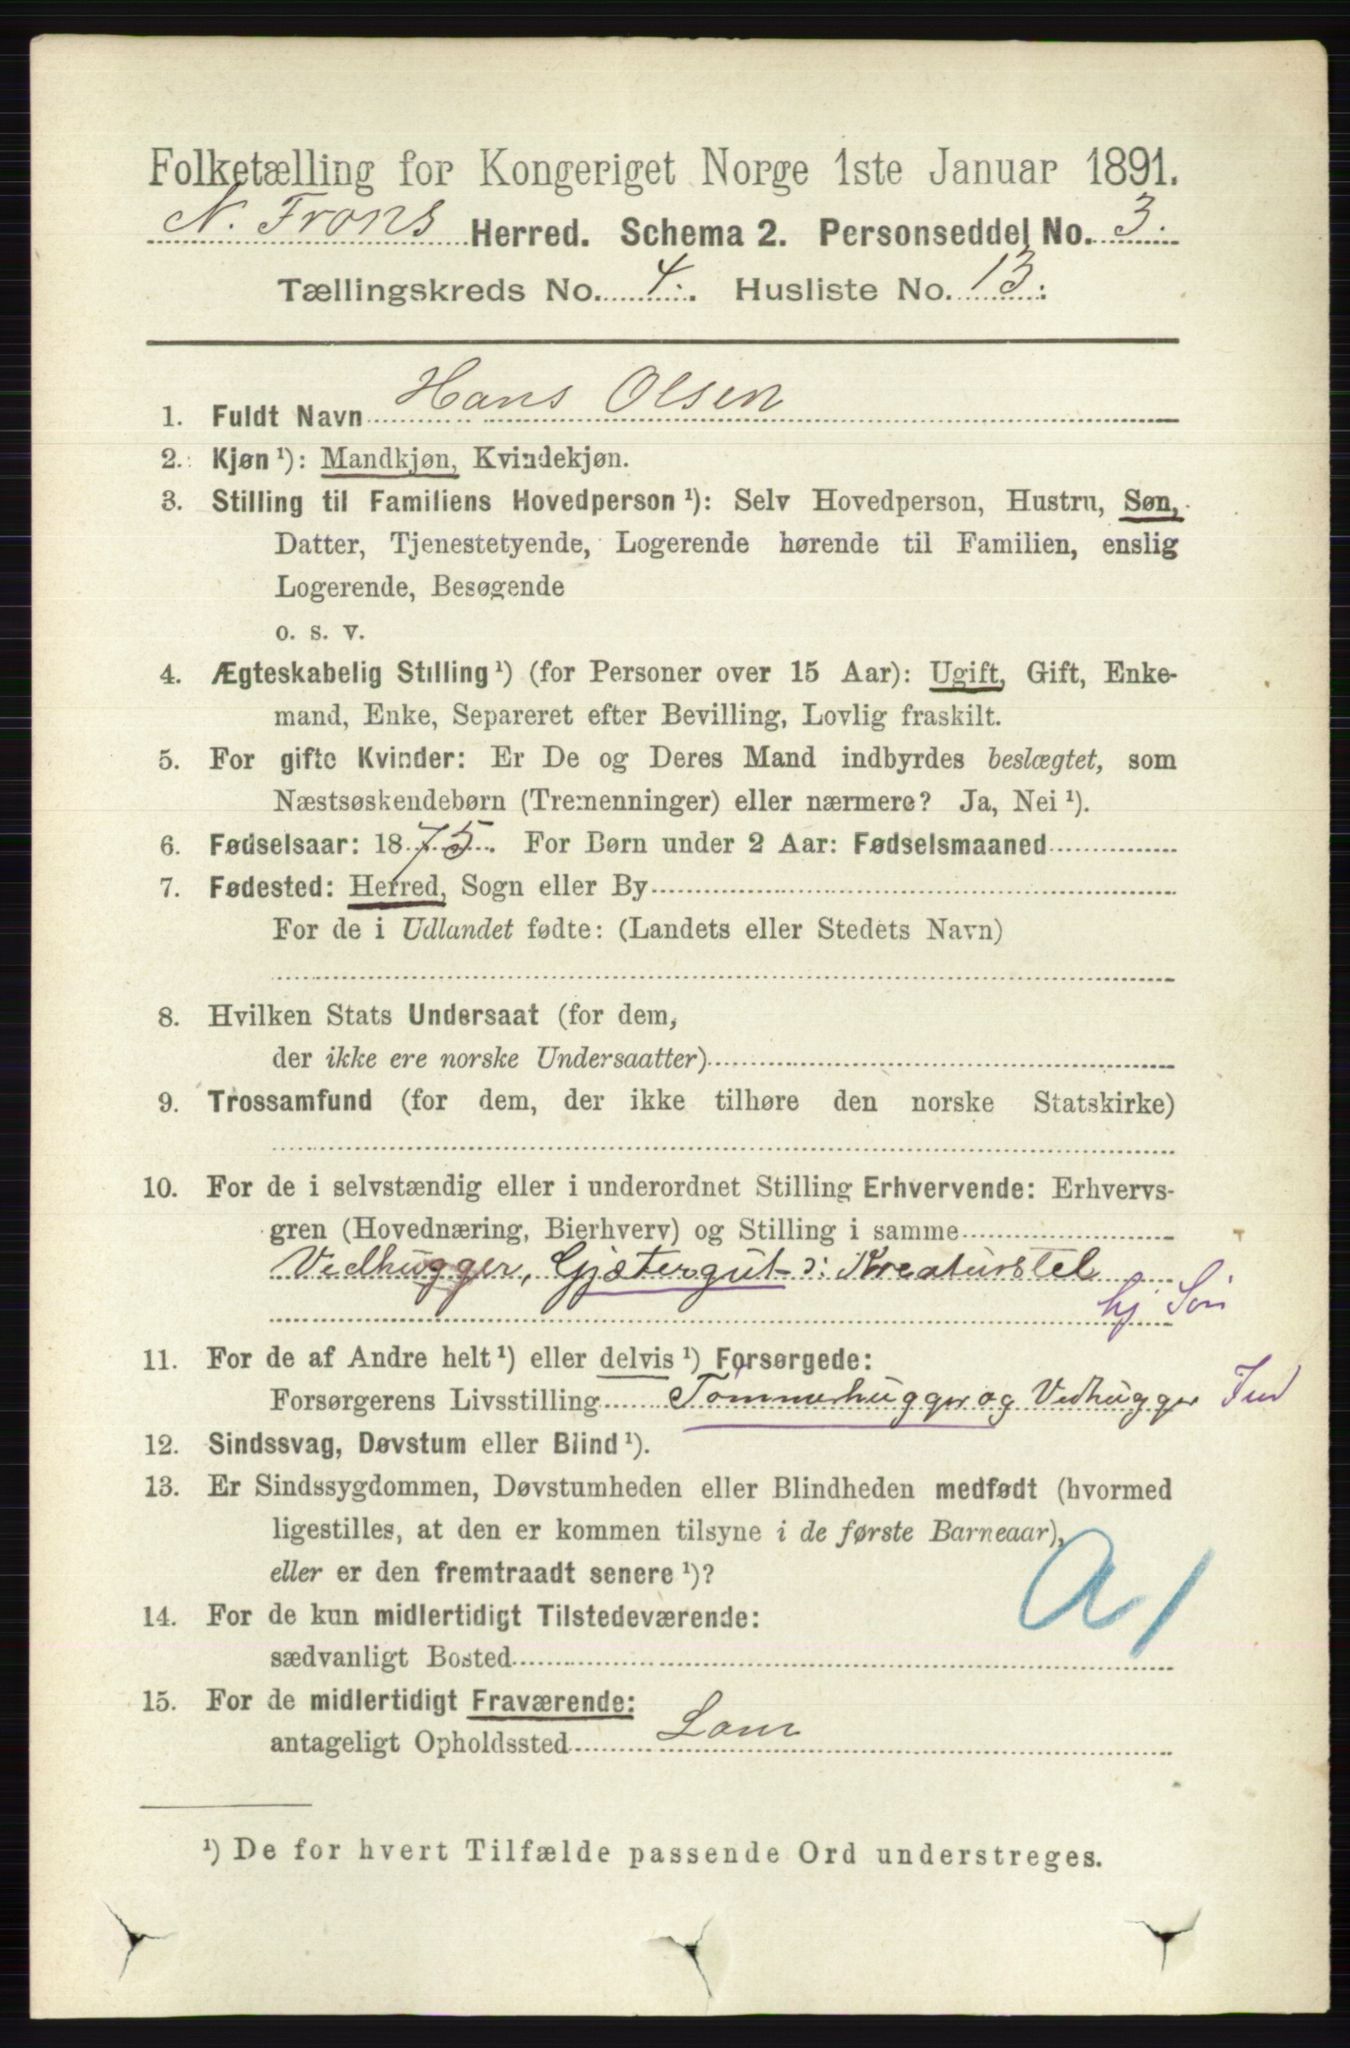 Folketælling for Kongeriget Norge 1ste Januar 1891.
N. Frons Herred. Schema 2. Personseddel No. 3.
Tællingskreds No. 4. Husliste No. 13.
1. Fuldt Navn Hans Olsen
2. Kjøn ¹): Mandkjøn, Kvindekjøn.
3. Stilling til Familiens Hovedperson ¹): Selv Hovedperson, Hustru, Søn,
Datter, Tjenestetyende, Logerende hørende til Familien, enslig
Logerende, Besøgende
o. s. v.
4. Ægteskabelig Stilling ¹) (for Personer over 15 Aar): Ugift, Gift, Enke-
mand, Enke, Separeret efter Bevilling, Lovlig fraskilt.
5. For gifte Kvinder: Er De og Deres Mand indbyrdes beslægtet, som
Næstsøskendebørn (Tremenninger) eller nærmere? Ja, Nei ¹).
6. Fødselsaar: 1875. For Børn under 2 Aar: Fødselsmaaned
7. Fødested: Herred, Sogn eller By
For de i Udlandet fødte: (Landets eller Stedets Navn)
8. Hvilken Stats Undersaat (for dem,
der ikke ere norske Undersaatter)
9. Trossamfund (for dem, der ikke tilhøre den norske Statskirke)
10. For de i selvstændig eller i underordnet Stilling Erhvervende: Erhvervs-
gren (Hovednæring, Bierhverv) og Stilling i samme
Vedhugger, Gjætergut ɔ: Kreaturstel
hj Søn
11. For de af Andre helt ¹) eller delvis ¹) Forsørgede:
Forsørgerens Livsstilling Tømmerhugger og Vedhugger
12. Sindssvag, Døvstum eller Blind ¹).
13. Er Sindssygdommen, Døvstumheden eller Blindheden medfødt (hvormed
ligestilles, at den er kommen tilsyne i de første Barneaar),
eller er den fremtraadt senere ¹)?
14. For de kun midlertidigt Tilstedeværende:
sædvanligt Bosted
15. For de midlertidigt Fraværende:
antageligt Opholdssted Lom
¹) De for hvert Tilfælde passende Ord understreges.